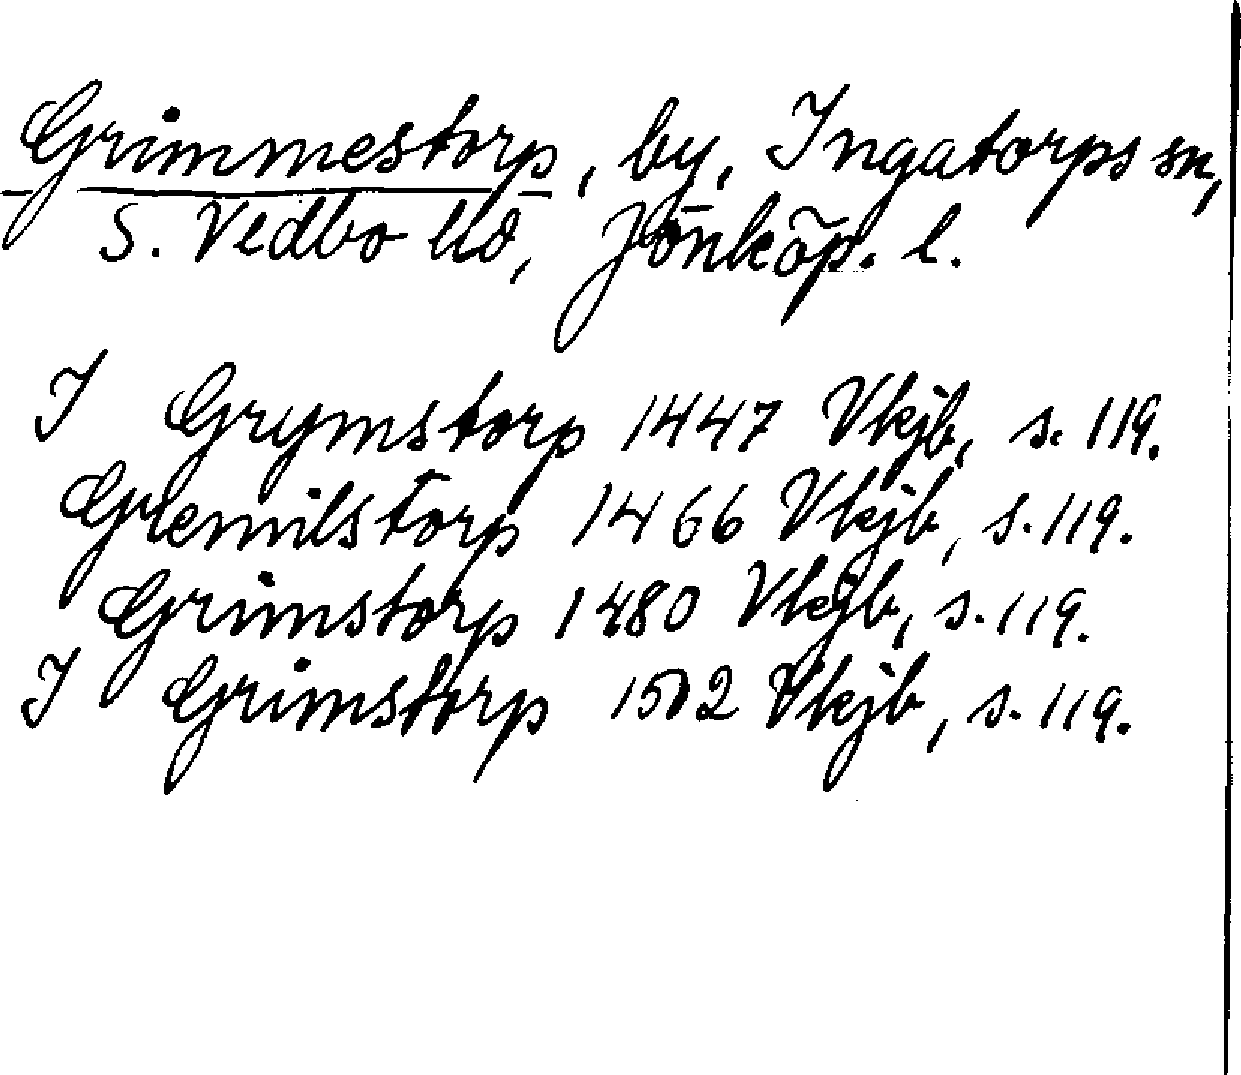 Grimmestorp, by, Ingatorps sn,
S. Vedbo hd, Jönköp. l.
I Grymstorp 1447 Vkjb, s. 119.
Gremilstorp 1466 Vkjb, s. 119.
Grimstorp 1480 Vkjb, s. 119.
I Grimstorp 1502 Vkjb, s. 119.